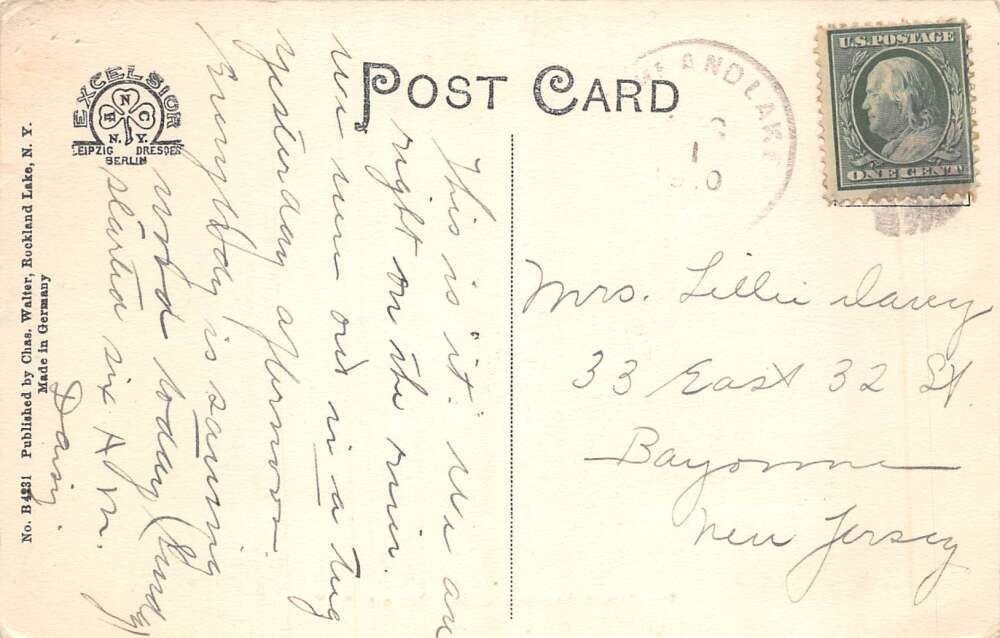 POST CARD
U.S. POSTAGE
ONE CENT
ANDLAKE
1
EXCELSIOR
A N C
N.Y.
LEIPZIG DRESDEN
BERLIN
No. B4231 Published by Chas. Walter, Rockland Lake, N. Y.
Made in Germany
This is it. We are
right on the river.
We were out in a tug
yesterday afternoon.
Everybody is sawing
wood today (Sunday)
started six A.M.
Daisy.
Mrs. Lillie Darcy
33 East 32 St.
Bayonne
New Jersey